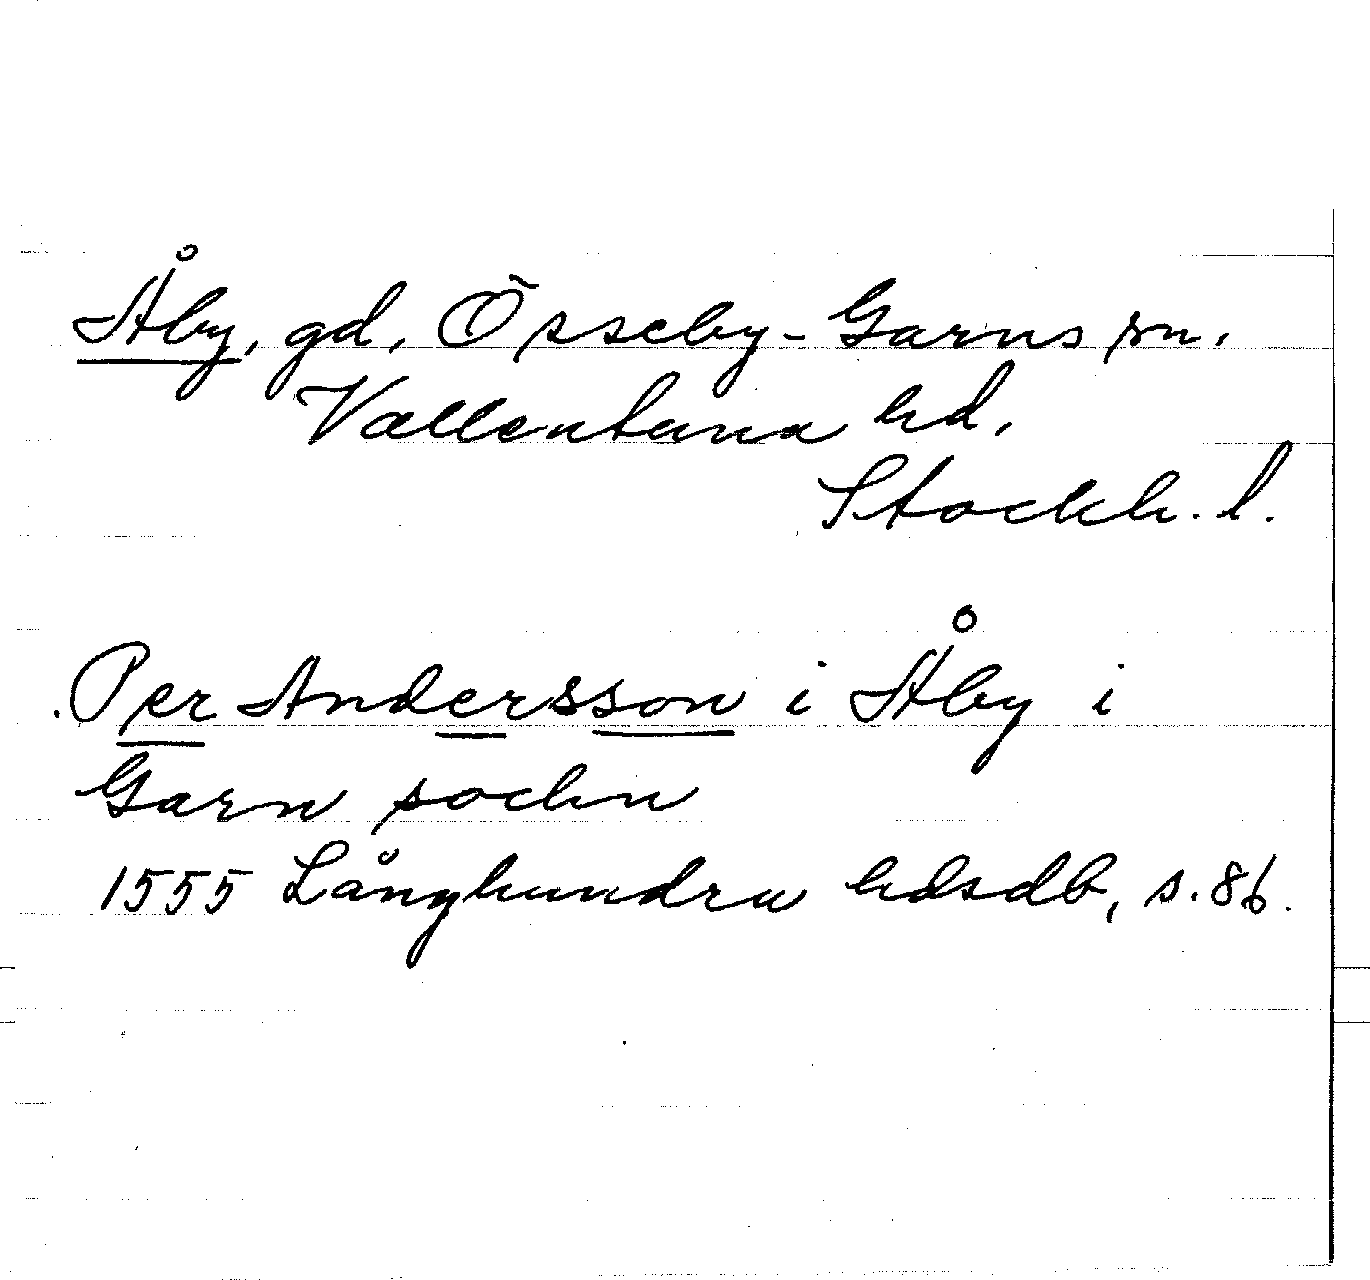 Åby, gd, Össeby-Garns sn.
Vallentuna hd,
Stockh. l.
Per Andersson i Åby i
Garn sochn
1555 Långhundra hdsdb, s. 86.